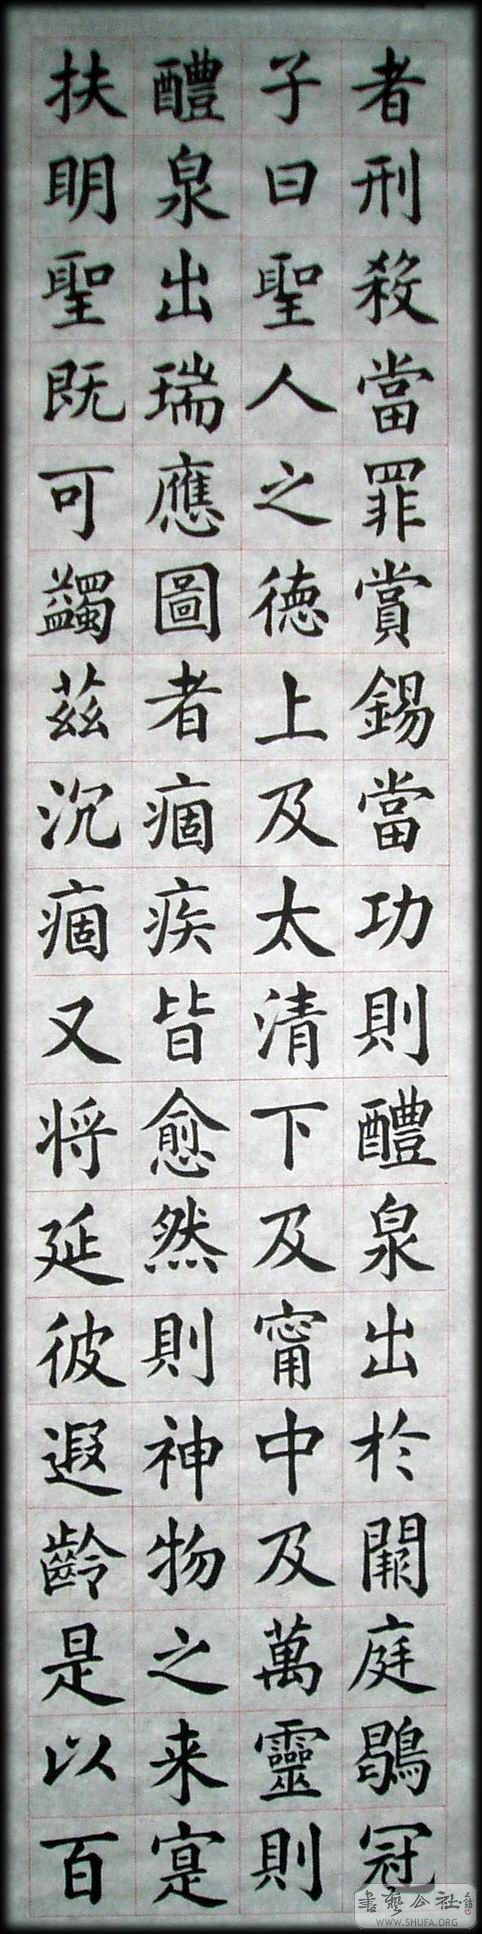 者刑殺當罪賞錫當功則醴泉出於闕庭鶡冠
子曰聖人之德上及太清下及甯中及萬靈則
醴泉出瑞應圖者痼疾皆愈然則神物之来寔
扶明聖既可蠲茲沉痼又将延彼遐齡是以百
書藝公社
WWW.SHUFA.ORG